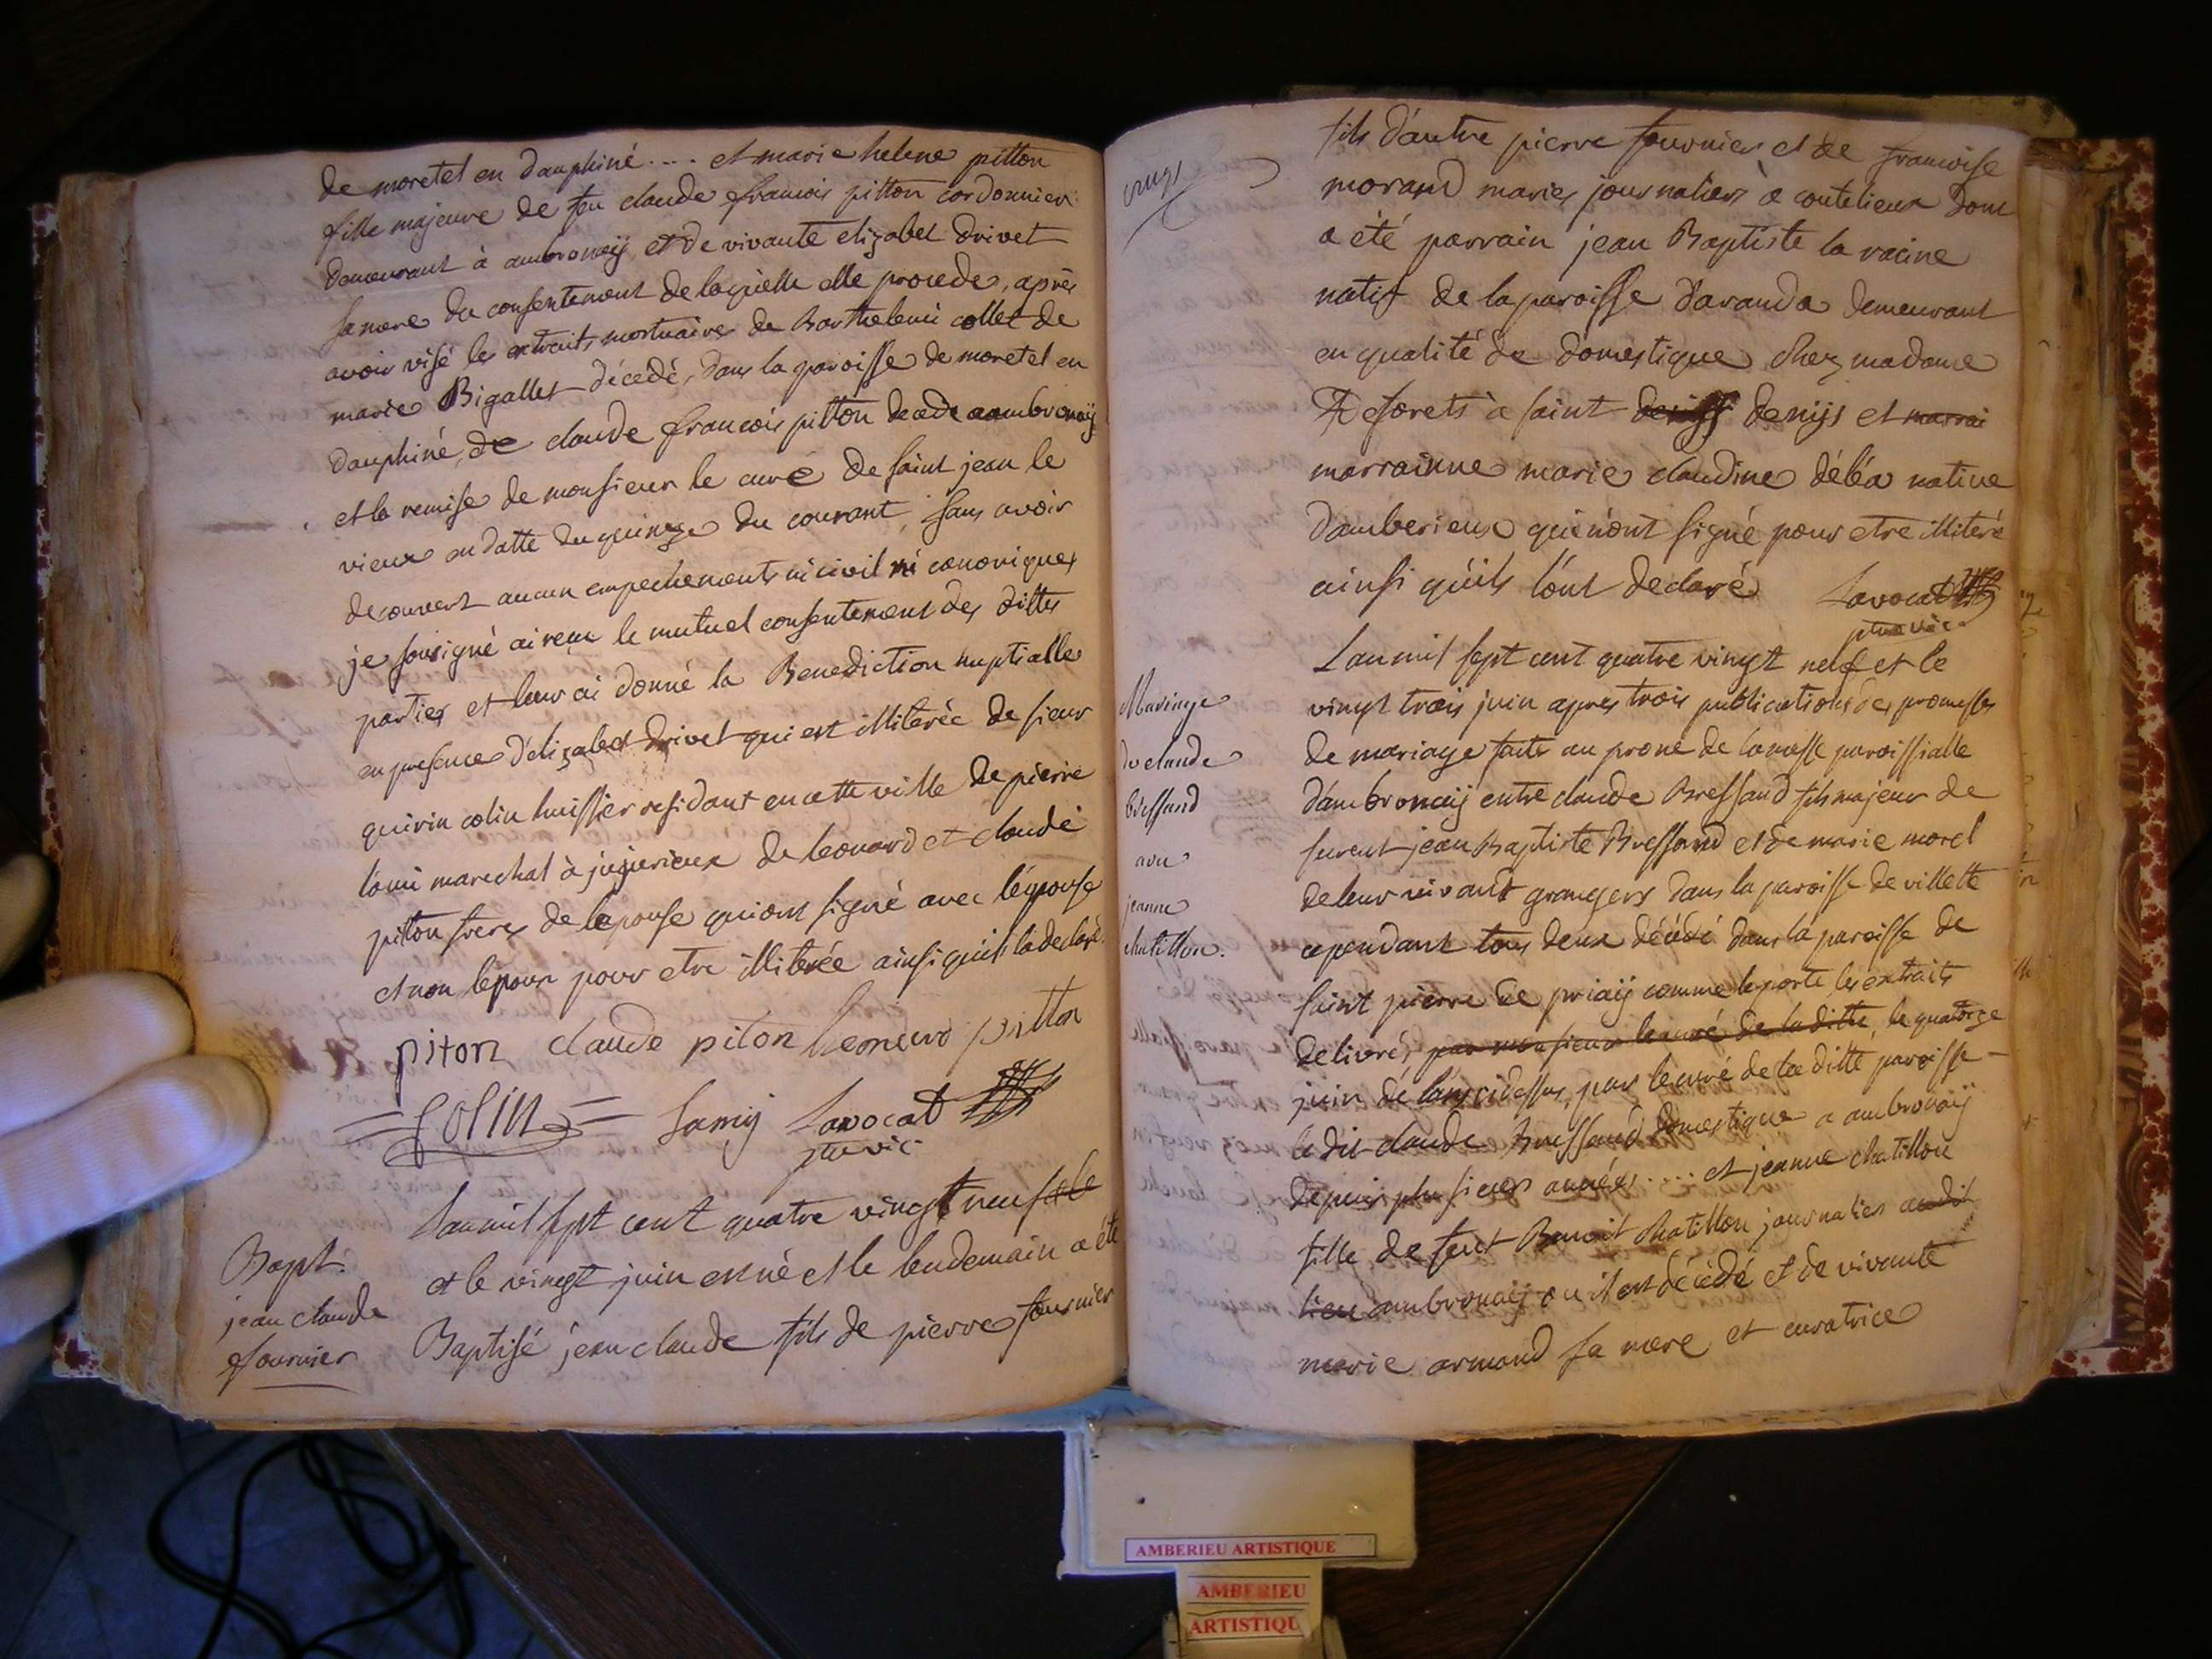 de moretel en dauphiné .... et marie helene pitton
fille majeure de feu claude francois pitton cordonnier
demeurant à ambronaÿ, et de vivante elizabet drivet
sa mere du consentement de laquelle elle procede, après
avoir visé les extraits mortuaires de Barthelemi collet de
marie Bigallet décedé, dans la paroisse de moretel en
dauphiné, de claude francois pitton decede a ambronaÿ
et la remise de monsieur le curé de saint jean le
vieux en datte du quinze du courant, sans avoir
decouvert aucun empechements ni civil ni canoniques
je sousigné ai reçu le mutuel consentement des dittes
parties et leur ai donné la Benediction nuptialle
en presence d'élizabet drivet qui est illiterée de sieur
quirin colin huissier residant en cette ville de pierre
lomi marechal à jujurieux de leonard et claude
pitton freres de lepouse qui ont signé avec lépouse
et non lepoux pour etre illiterée ainsi quil la declaré.
piton claude piton leonard pitton
= COLIN = Lamÿ Lavocat
ptre vic
Lan mil sept cent quatre vingt neuf et le
Bapt.
jean claude
fournier
et le vingt juin est né et le lendemain a été
Baptisé jean claude fils de pierre fournier
fils d'autre pierre fournier et de francoise
morand mariés journaliers à coutelieux dont
a été parrain jean Baptiste la racine
natif de la paroisse d'aranda demeurant
en qualité de domestique chez madame
Desorets à saint denijs et marrai
marrainne marie claudine débéa native
damberieux qui n'ont signé pour etre illiteré
ainsi qu'ils l'ont declaré Lavocat
ptre vic.
Mariage
de claude
bressand
avec
jeanne
chatillon.
Lan mil sept cent quatre vingt neuf et le
vingt trois juin apres trois publications des promesses
de mariage faite au prone de la messe paroissialle
d'ambronaÿ entre claude Bressand fils majeur de
furent jean Baptiste Bressand et de marie morel
de leur vivant grangers dans la paroisse de villette
cependant tous deux décédé dans la paroisse de
saint pierre de priaÿ comme le porte les extraits
delivrés par monsieur le curé de la ditte, le quatorze
juin de lans cidessus, par le curé de la ditte paroisse -
le dit claude Bressand domestique a ambronaÿ
depuis plusieurs années .... et jeanne chatillon
fille de feut Benoit chatillon journalier audit
lieu ambronaÿ ou il est décédé et de vivante
marie armand sa mere et curatrice
AMBERIEU ARTISTIQUE
AMBERIEU
ARTISTIQU